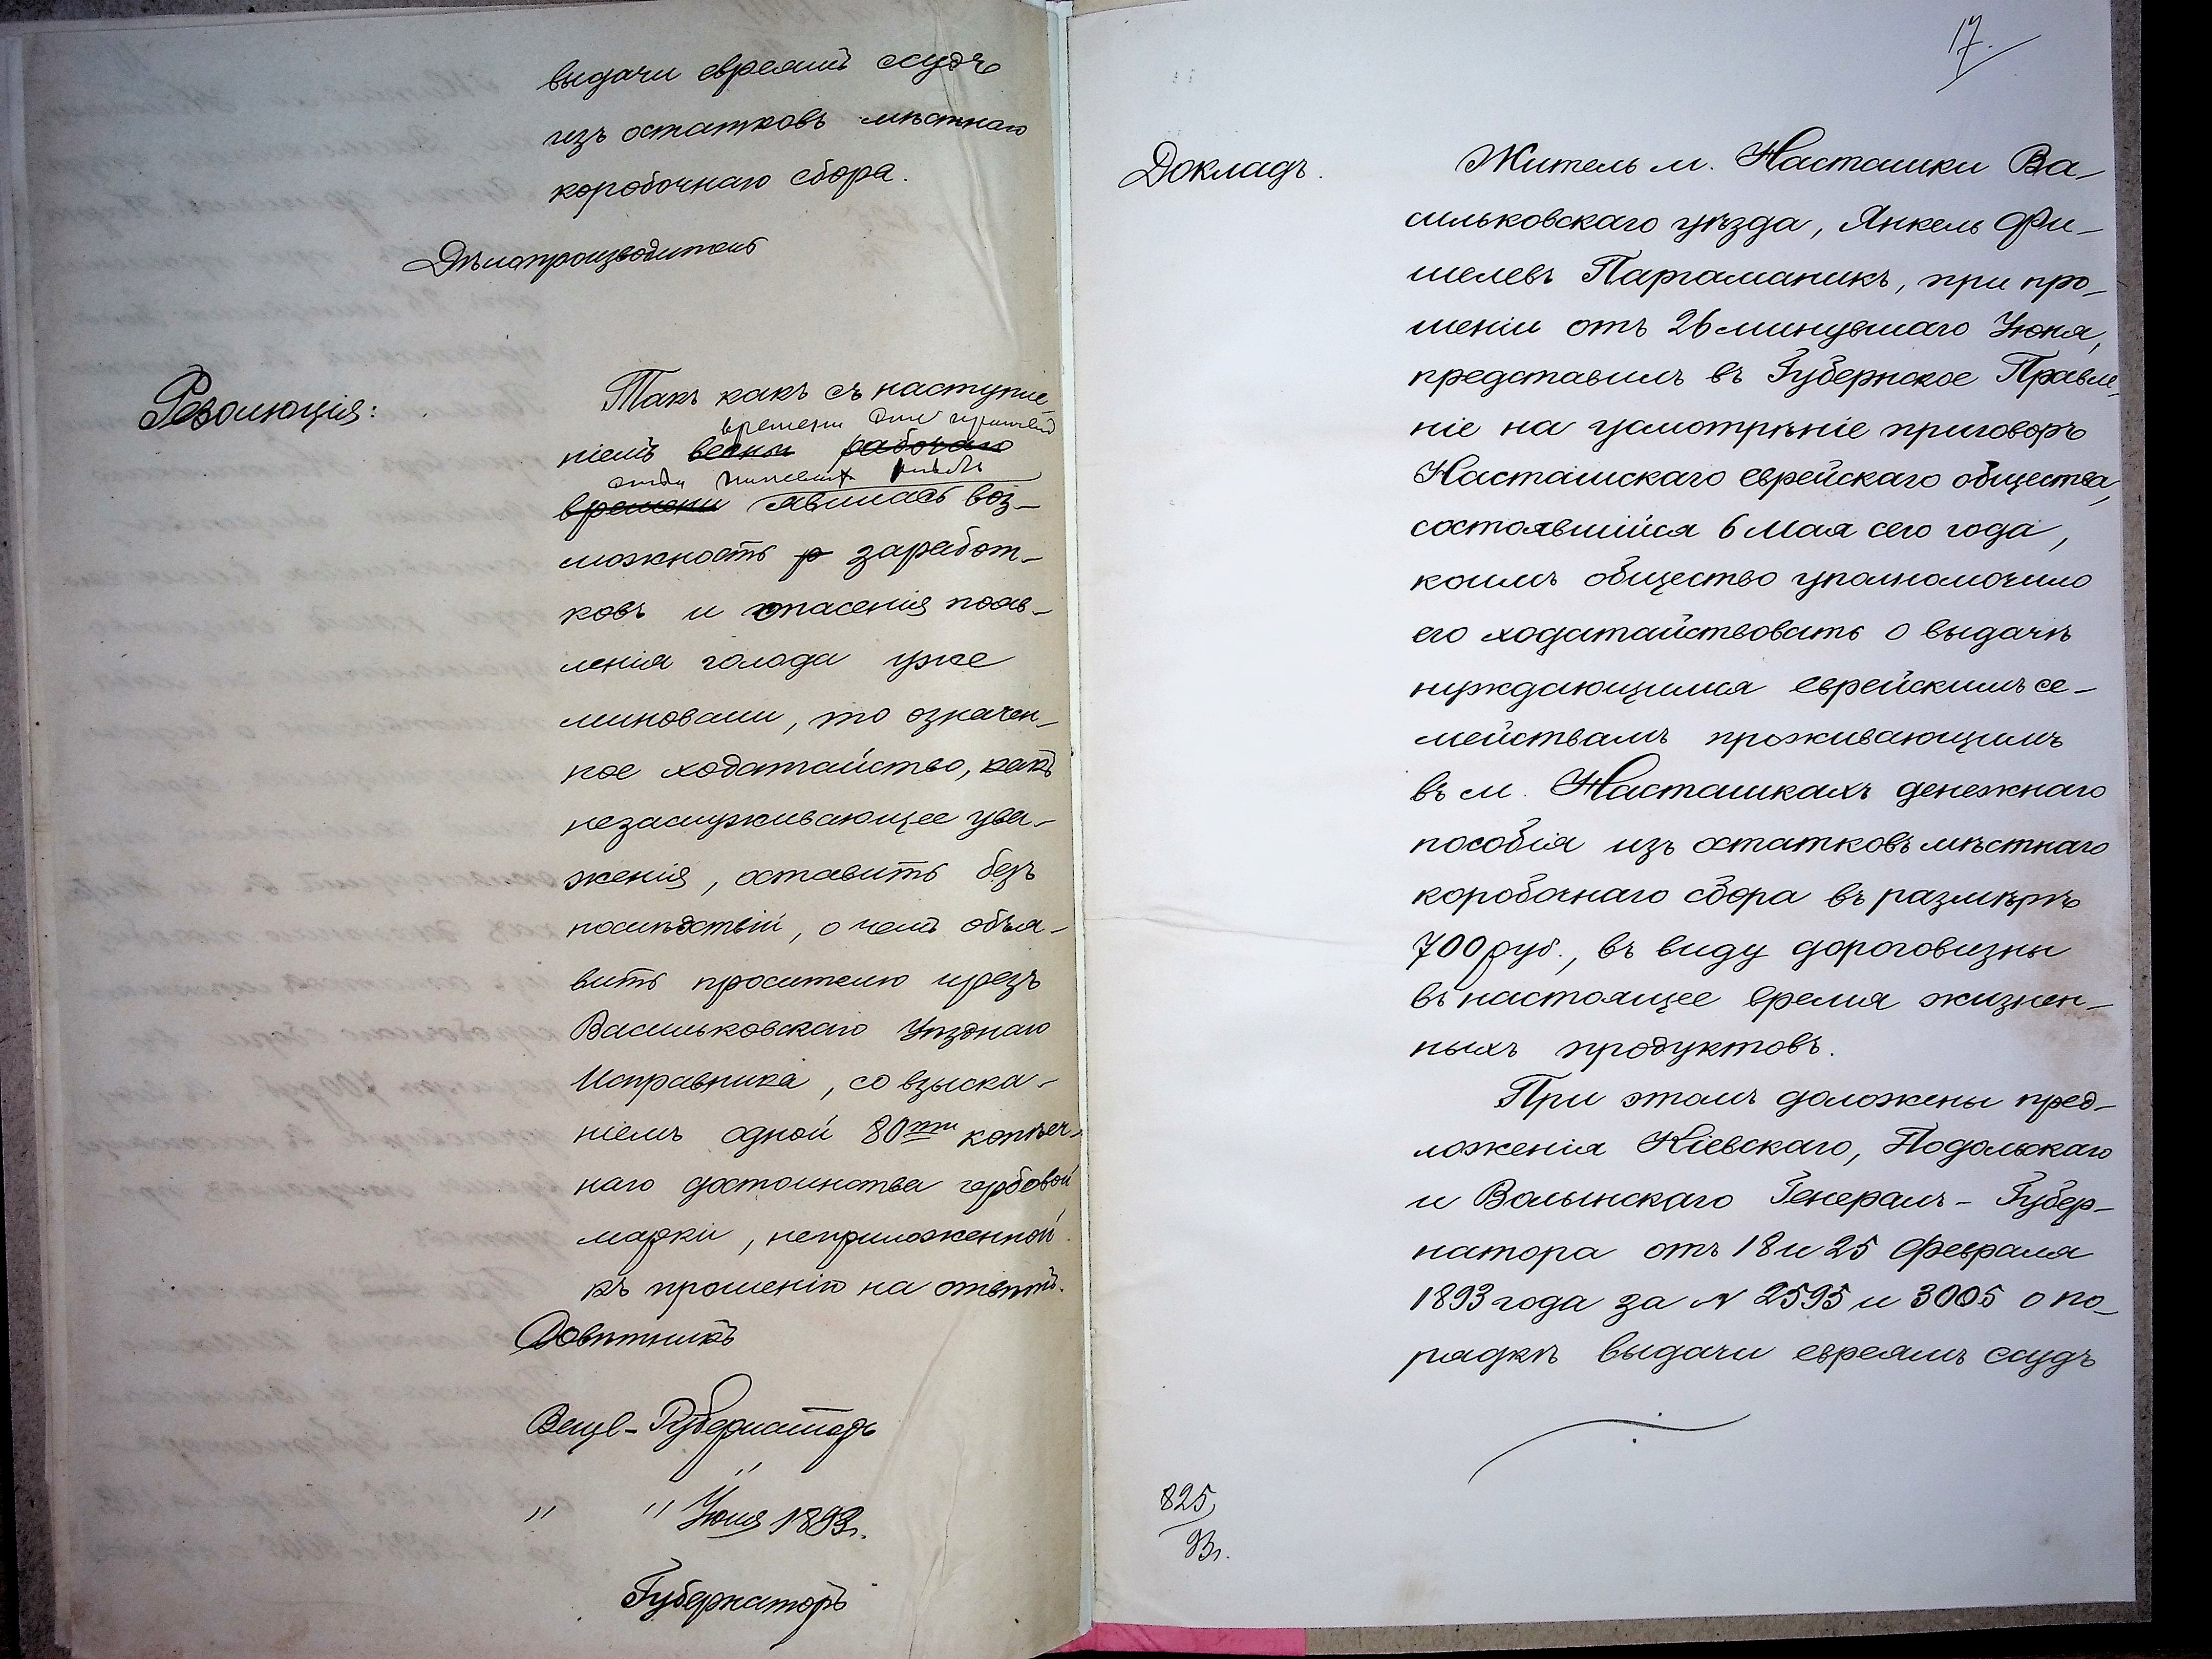 выдачи евреямъ ссудъ
изъ остатковъ мѣстнаго
коробочнаго сбора.
Дѣлопроизводитель
Резолюція:
Такъ какъ съ наступле
времени для уборки
ніемъ весны рабочаго
хлѣбовъ
времени явилась воз-
можность р заработ-
ковъ и опасенія появ-
ленія голода уже
миновали, то означен-
ное ходатайство, какъ
незаслуживающее ува-
женія, оставить безъ
послѣдствій, о чемъ объя-
вить просителю чрезъ
Васильковскаго Уѣзднаго
Исправника, со взыска-
ніемъ одной 80ти копѣеч-
наго достоинства гербовой
марки, неприложенной
къ прошенію на отвѣтъ.
Совѣтникъ
Вице-Губернаторъ
" " Іюля 1893г.
Губернаторъ
17.
Докладъ.
Житель м. Насташки Ва-
сильковскаго уѣзда, Янкель Фи-
шелевъ Паргаманикъ, при про-
шеніи отъ 26 минувшаго Іюня,
представилъ въ Губернское Правле
ніе на усмотрѣніе приговоръ
Насташскаго еврейскаго общества,
состоявшійся 6 Мая сего года,
коимъ общество уполномочило
его ходатайствовать о выдачѣ
нуждающимся еврейскимъ се-
мействамъ проживающимъ
въ м. Насташкахъ денежнаго
пособія изъ остатковъ мѣстнаго
коробочнаго сбора въ размѣрѣ
700 руб., въ виду дороговизны
въ настоящее время жизнен-
ныхъ продуктовъ.
При этомъ доложены пред-
ложенія Кіевскаго, Подольскаго
и Волынскаго Генералъ-Губер-
натора отъ 18 и 25 Февраля
1893 года за № 2595 и 3005 о по-
рядкѣ выдачи евреямъ ссудъ
825
93г.